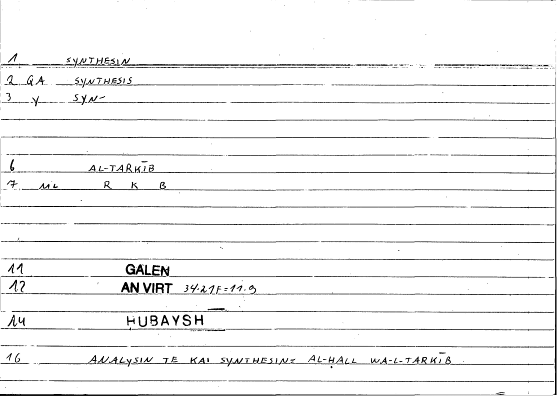 1 SYNTHESIN
2 QA SYNTHESIS
3 Y SYN-
6 AL-TARKĪB
7 ML R K B
11 GALEN
12 AN VIRT 34.21F=11.9
14 HUBAYSH
16 ANALYSIN TE KAI SYNTHESIN= AL-ḤALL WA-L-TARKĪB